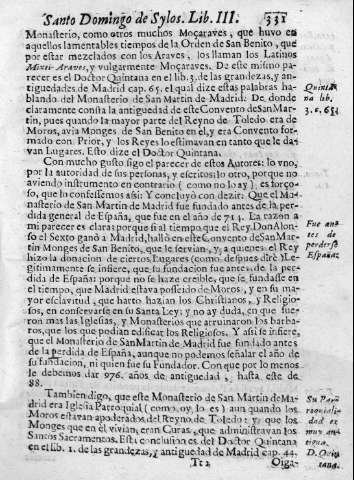 Santo Domingo de Sylos. Lib. III. 331
Monasterio, como otros muchos Moçaraves, que huvo en
aquellos lamentables tiempos de la Orden de San Benito, que
por estar mezclados con los Araves, los llaman los Latinos
Mixti-Araves, y vulgarmente Moçaraves. De este mismo pa-
recer es el Doctor Quintana en el lib. 3. de las grandezas, y an-
tiguedades de Madrid cap. 65. el qual dize estas palabras ha-
blando del Monasterio de San Martin de Madrid. De, donde
claramente consta la antiguedad de este Convento de San Mar-
tin, pues quando la mayor parte del Reyno de Toledo era de
Moros, avia Monges de San Benito en el, y era Convento for-
mado con Prior, y los Reyes lo estimavan en tanto que le da-
van Lugares. Esto dize el Doctor Quintana.
Quinta-
na lib.
3. c. 65.
Con mucho gusto sigo el parecer de estos Autores: lo vno,
por la autoridad de sus personas, y escritos: lo otro, porque no
aviendo instrumento en contrario (como no lo ay) es forço-
so, que lo confessèmos assi: Y concluyo con dezir: Que el Mo-
nasterio de San Martin de Madrid fue fundado antes de la per-
dida general de España, que fue en el año de 714. La razon a
mi parecer es clara: porque si al tiempo que el Rey Don Alon-
so el Sexto ganò a Madrid, hallò en este Convento de San Mar-
tin Monges de San Benito, que le servian, y a quienes el Rey
hizo la donacion de ciertos Lugares (como despues dirè) Le-
gitimamente se infiere, que su fundacion fue antes de la per-
dida de España: porque no se haze creible, que se fundasse en
el tiempo, que Madrid estava posseido de Moros, y en su ma-
yor esclavitud, que harto hazian los Christianos, y Religio-
sos, en conservarse en su Santa Ley: y no ay duda, en que fue-
ron mas las Iglesias, y Monasterios que arruinaron los barba-
ros, que los que podian edificar los Religiosos. Y assi se infiere,
que el Monasterio de San Martin de Madrid fue fundado antes
de la perdida de España, aunque no podemos señalar el año de
su fundacion, ni quien fue su Fundador. Con que por lo menos
le debemos dar 976. años de antiguedad, hasta este de
88.
Fue an-
tes de
perderse
España.
Tambien digo, que este Monasterio de San Martin de Ma-
drid era Iglesia Parroquial (como oy lo es) aun quando los
Moros estavan apoderados del Reyno de Toledo: y que los
Monges que en el vivian, eran Curas, que administravan los
Santos Sacramentos. Esta conclusion es del Doctor Quintana
en el lib. 1. de las grandezas, y antiguedad de Madrid cap. 44.
Su Par-
roquiali-
dad es
muy an-
tigua.
D. Quin-
tana.
Tt 2 Oiga-